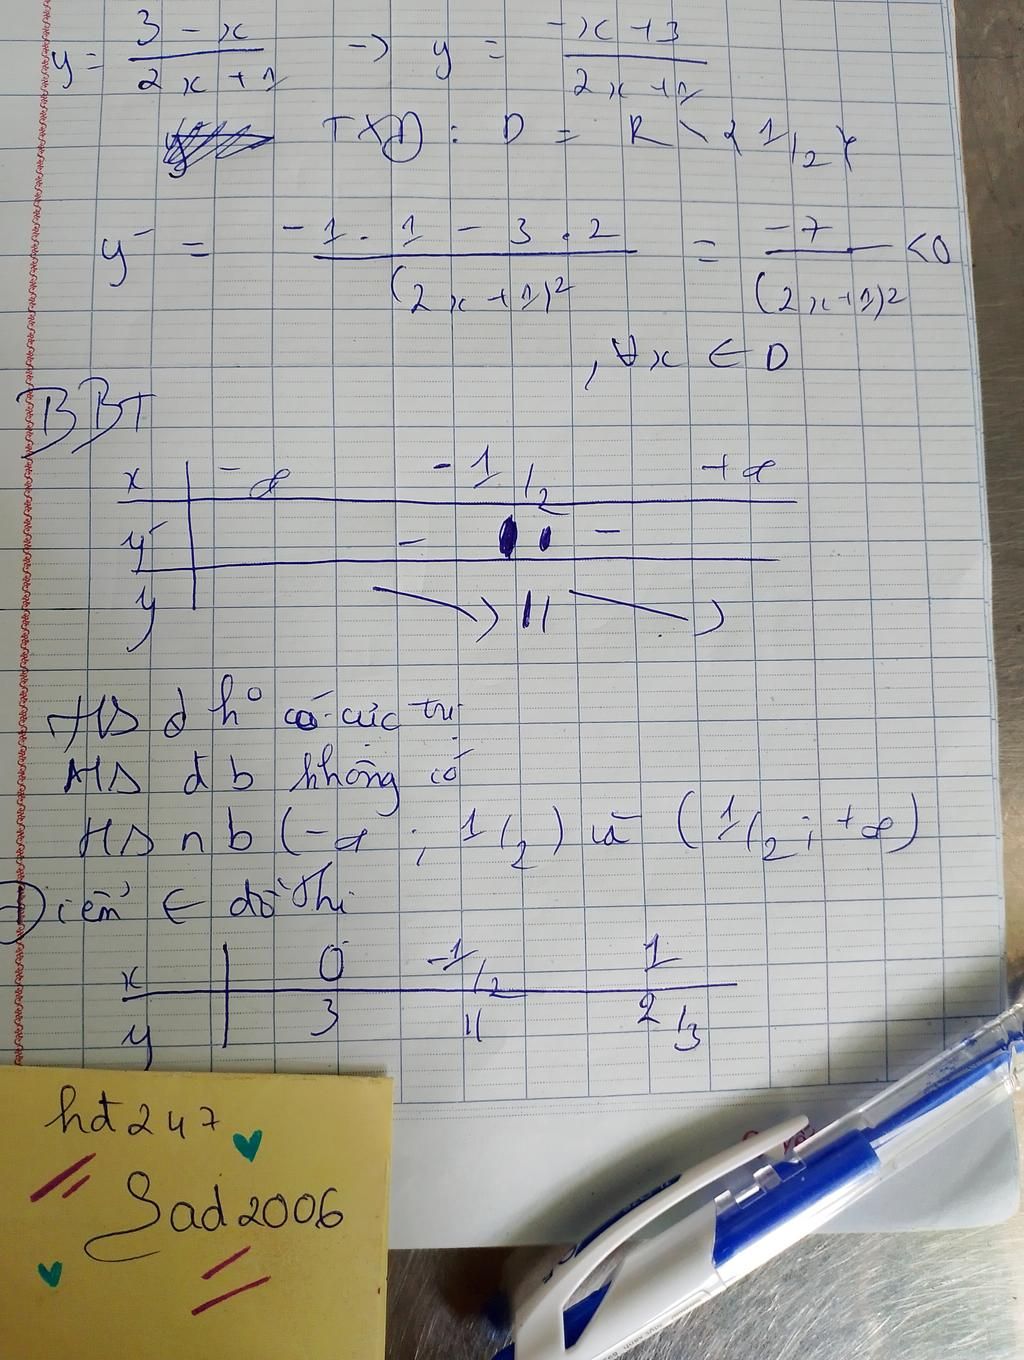 y = (3 - x)/(2x + 1) -> y = (-x + 3)/(2x + 1)
TXD : D = R \ { 1/2 }
y' = (-1 . 1 - 3 . 2)/(2x + 1)² = -7/(2x + 1)² < 0
, ∀x ∈ D
BBT
x | -∞ -1/2 +∞
y' | - || -
y | || 
HS đ h° có cực trị
HS đ b không có
HS n b (-∞ ; 1/2) và (1/2 ; +∞)
Điểm ∈ đồ thị
x | 0 -1/2 1
y | 3 || 2/3
hđ247
Sad2006